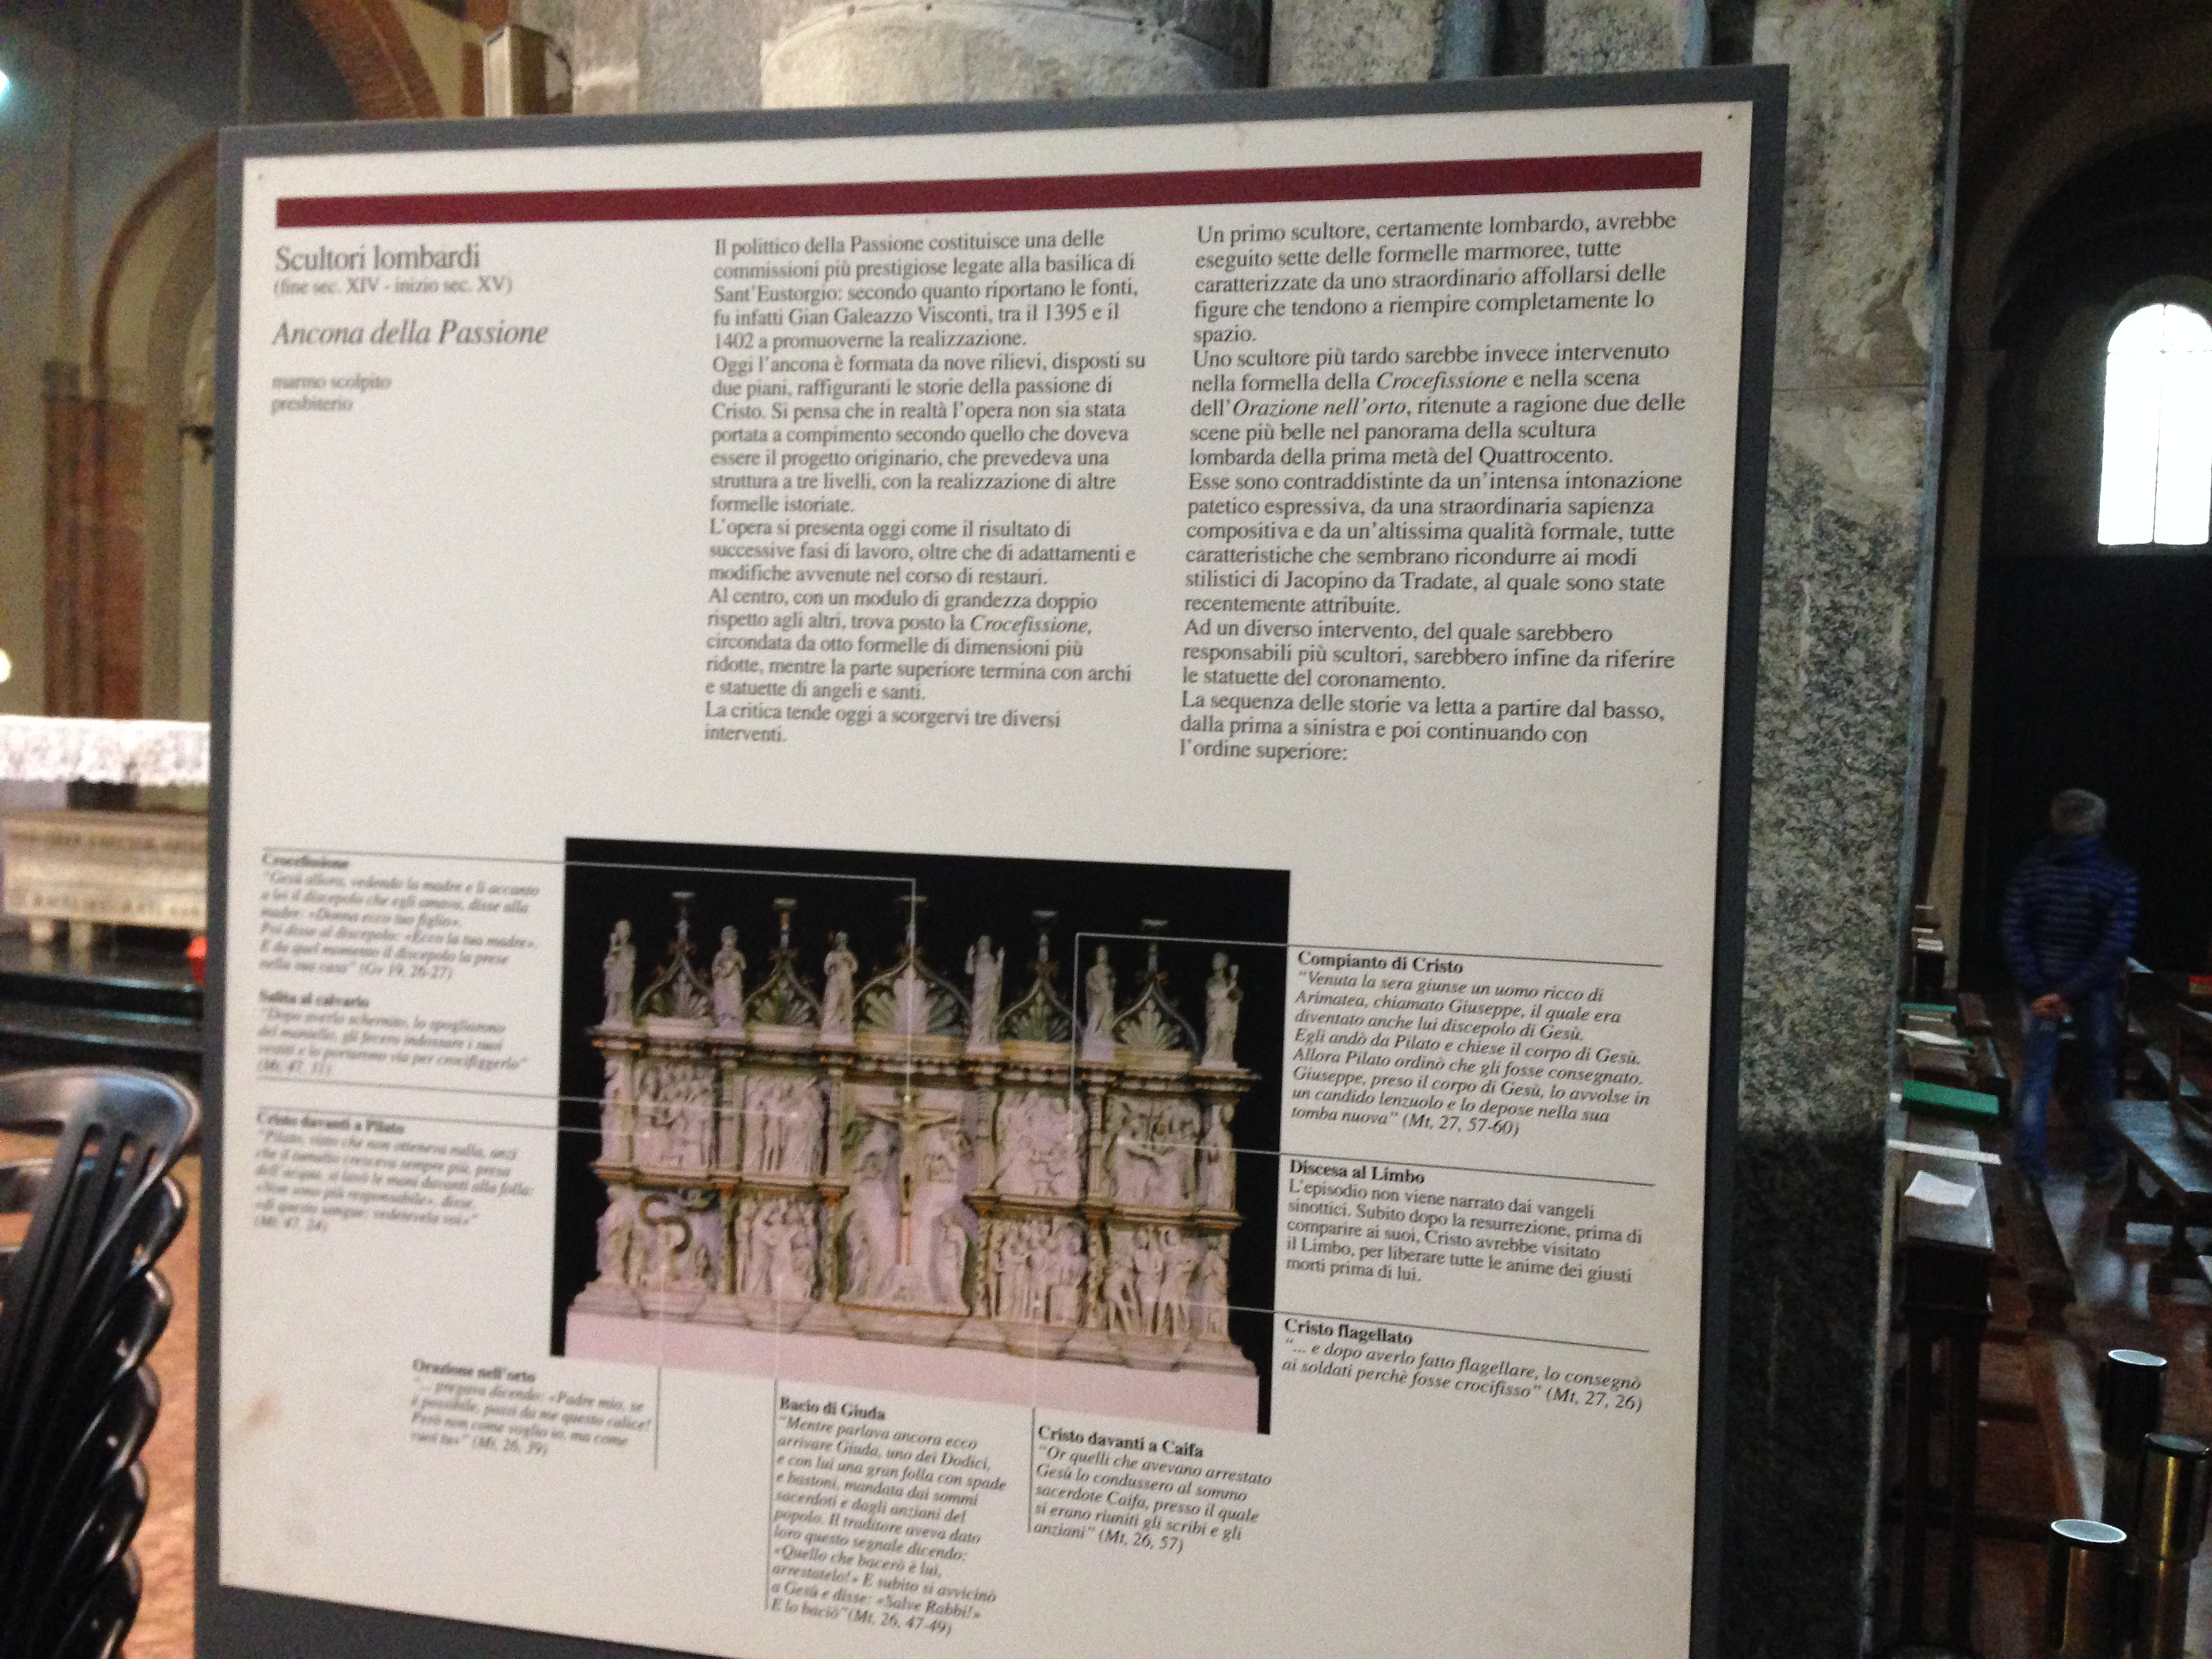 Scultori lombardi
(fine sec. XIV - inizio sec. XV)
Ancona della Passione
marmo scolpito
presbiterio
Il polittico della Passione costituisce una delle
commissioni più prestigiose legate alla basilica di
Sant'Eustorgio: secondo quanto riportano le fonti,
fu infatti Gian Galeazzo Visconti, tra il 1395 e il
1402 a promuoverne la realizzazione.
Oggi l'ancona è formata da nove rilievi, disposti su
due piani, raffiguranti le storie della passione di
Cristo. Si pensa che in realtà l'opera non sia stata
portata a compimento secondo quello che doveva
essere il progetto originario, che prevedeva una
struttura a tre livelli, con la realizzazione di altre
formelle istoriate.
L'opera si presenta oggi come il risultato di
successive fasi di lavoro, oltre che di adattamenti e
modifiche avvenute nel corso di restauri.
Al centro, con un modulo di grandezza doppio
rispetto agli altri, trova posto la Crocefissione,
circondata da otto formelle di dimensioni più
ridotte, mentre la parte superiore termina con archi
e statuette di angeli e santi.
La critica tende oggi a scorgervi tre diversi
interventi.
Un primo scultore, certamente lombardo, avrebbe
eseguito sette delle formelle marmoree, tutte
caratterizzate da uno straordinario affollarsi delle
figure che tendono a riempire completamente lo
spazio.
Uno scultore più tardo sarebbe invece intervenuto
nella formella della Crocefissione e nella scena
dell'Orazione nell'orto, ritenute a ragione due delle
scene più belle nel panorama della scultura
lombarda della prima metà del Quattrocento.
Esse sono contraddistinte da un'intensa intonazione
patetico espressiva, da una straordinaria sapienza
compositiva e da un'altissima qualità formale, tutte
caratteristiche che sembrano ricondurre ai modi
stilistici di Jacopino da Tradate, al quale sono state
recentemente attribuite.
Ad un diverso intervento, del quale sarebbero
responsabili più scultori, sarebbero infine da riferire
le statuette del coronamento.
La sequenza delle storie va letta a partire dal basso,
dalla prima a sinistra e poi continuando con
l'ordine superiore:
Crocefissione
"Gesù allora, vedendo la madre e lì accanto
a lei il discepolo che egli amava, disse alla
madre: «Donna ecco tuo figlio».
Poi disse al discepolo: «Ecco la tua madre».
E da quel momento il discepolo la prese
nella sua casa" (Gv 19, 26-27)
Salita al calvario
"Dopo averlo schernito, lo spogliarono
del mantello, gli fecero indossare i suoi
vestiti e lo portarono via per crocifiggerlo"
(Mt, 47, 31)
Cristo davanti a Pilato
"Pilato, visto che non otteneva nulla, anzi
che il tumulto cresceva sempre più, presa
dell'acqua, si lavò le mani davanti alla folla:
«Non sono più responsabile», disse,
«di questo sangue; vedetevela voi»"
(Mt, 47, 24)
Orazione nell'orto
"... pregava dicendo: «Padre mio, se
è possibile, passi da me questo calice!
Però non come voglio io, ma come
vuoi tu»" (Mt, 26, 39)
Bacio di Giuda
"Mentre parlava ancora ecco
arrivare Giuda, uno dei Dodici,
e con lui una gran folla con spade
e bastoni, mandata dai sommi
sacerdoti e dagli anziani del
popolo. Il traditore aveva dato
loro questo segnale dicendo:
«Quello che bacerò è lui,
arrestatelo!» E subito si avvicinò
a Gesù e disse: «Salve Rabbi!»
E lo baciò" (Mt, 26, 47-49)
Cristo davanti a Caifa
"Or quelli che avevano arrestato
Gesù lo condussero al sommo
sacerdote Caifa, presso il quale
si erano riuniti gli scribi e gli
anziani" (Mt, 26, 57)
Compianto di Cristo
"Venuta la sera giunse un uomo ricco di
Arimatea, chiamato Giuseppe, il quale era
diventato anche lui discepolo di Gesù.
Egli andò da Pilato e chiese il corpo di Gesù.
Allora Pilato ordinò che gli fosse consegnato.
Giuseppe, preso il corpo di Gesù, lo avvolse in
un candido lenzuolo e lo depose nella sua
tomba nuova" (Mt, 27, 57-60)
Discesa al Limbo
L'episodio non viene narrato dai vangeli
sinottici. Subito dopo la resurrezione, prima di
comparire ai suoi, Cristo avrebbe visitato
il Limbo, per liberare tutte le anime dei giusti
morti prima di lui.
Cristo flagellato
"... e dopo averlo fatto flagellare, lo consegnò
ai soldati perchè fosse crocifisso" (Mt, 27, 26)